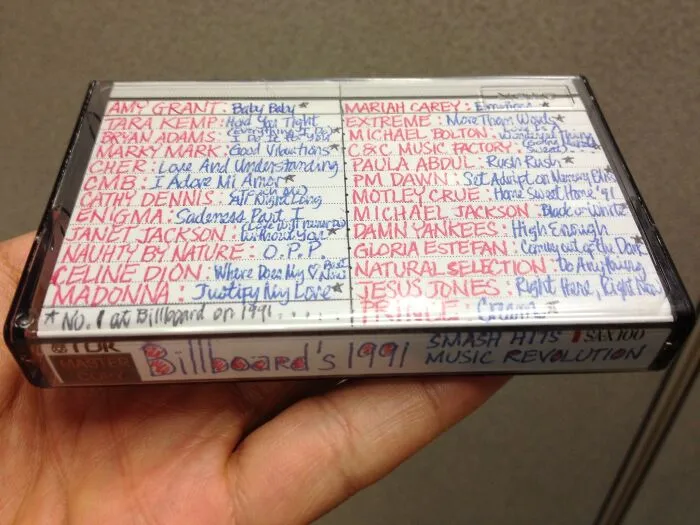 AMY GRANT: Baby Baby*
TARA KEMP: Hold You Tight
BRYAN ADAMS: (Everything I Do) I Do It For You*
MARKY MARK: Good Vibrations*
CHER: Love And Understanding
CMB: I Adore Mi Amor*
CATHY DENNIS: (Touch Me) All Night Long
ENIGMA: Sadeness Part I
JANET JACKSON: (Love Will Never Do) Without You*
NAUHTY BY NATURE: O.P.P
CELINE DION: Where Does My ♡ Beat Now
MADONNA: Justify My Love*
* No. 1 at Billboard on 1991....
MARIAH CAREY: Emotions*
EXTREME: More Than Words*
MICHAEL BOLTON: Love Is A Wonderful Thing
C&C MUSIC FACTORY:
PAULA ABDUL: Rush Rush*
PM DAWN: Set Adrift on Memory Bliss
MOTLEY CRUE: Home Sweet Home '91
MICHAEL JACKSON: Black or White*
DAMN YANKEES: High Enough
GLORIA ESTEFAN: Coming out of the Dark*
NATURAL SELECTION: Do Anything
JESUS JONES: Right Here, Right Now
PRINCE: Cream*
TDK
MASTER
Billboard's 1991
SMASH HITS
MUSIC REVOLUTION
SAX100